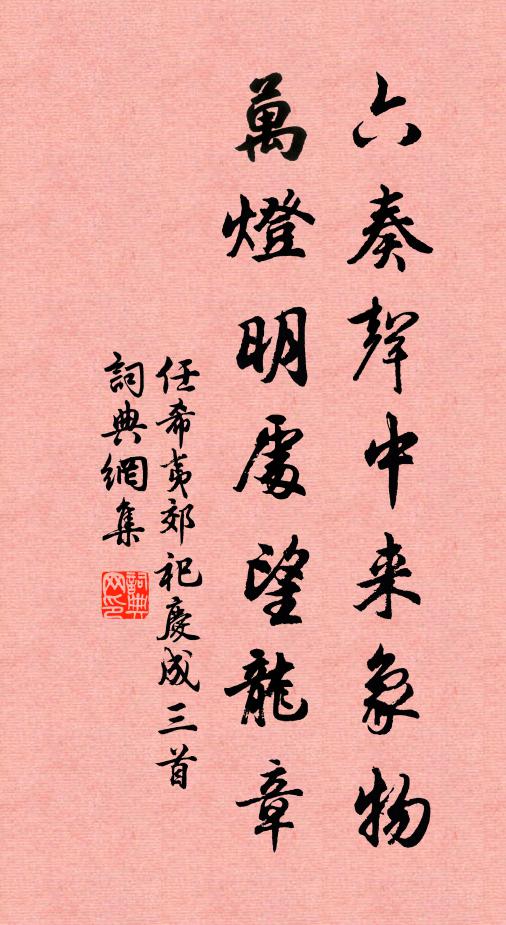 六奏聲中来象物
萬燈明處望龍章
任希夷郊祀慶成三首
詞典網集
詞典网印